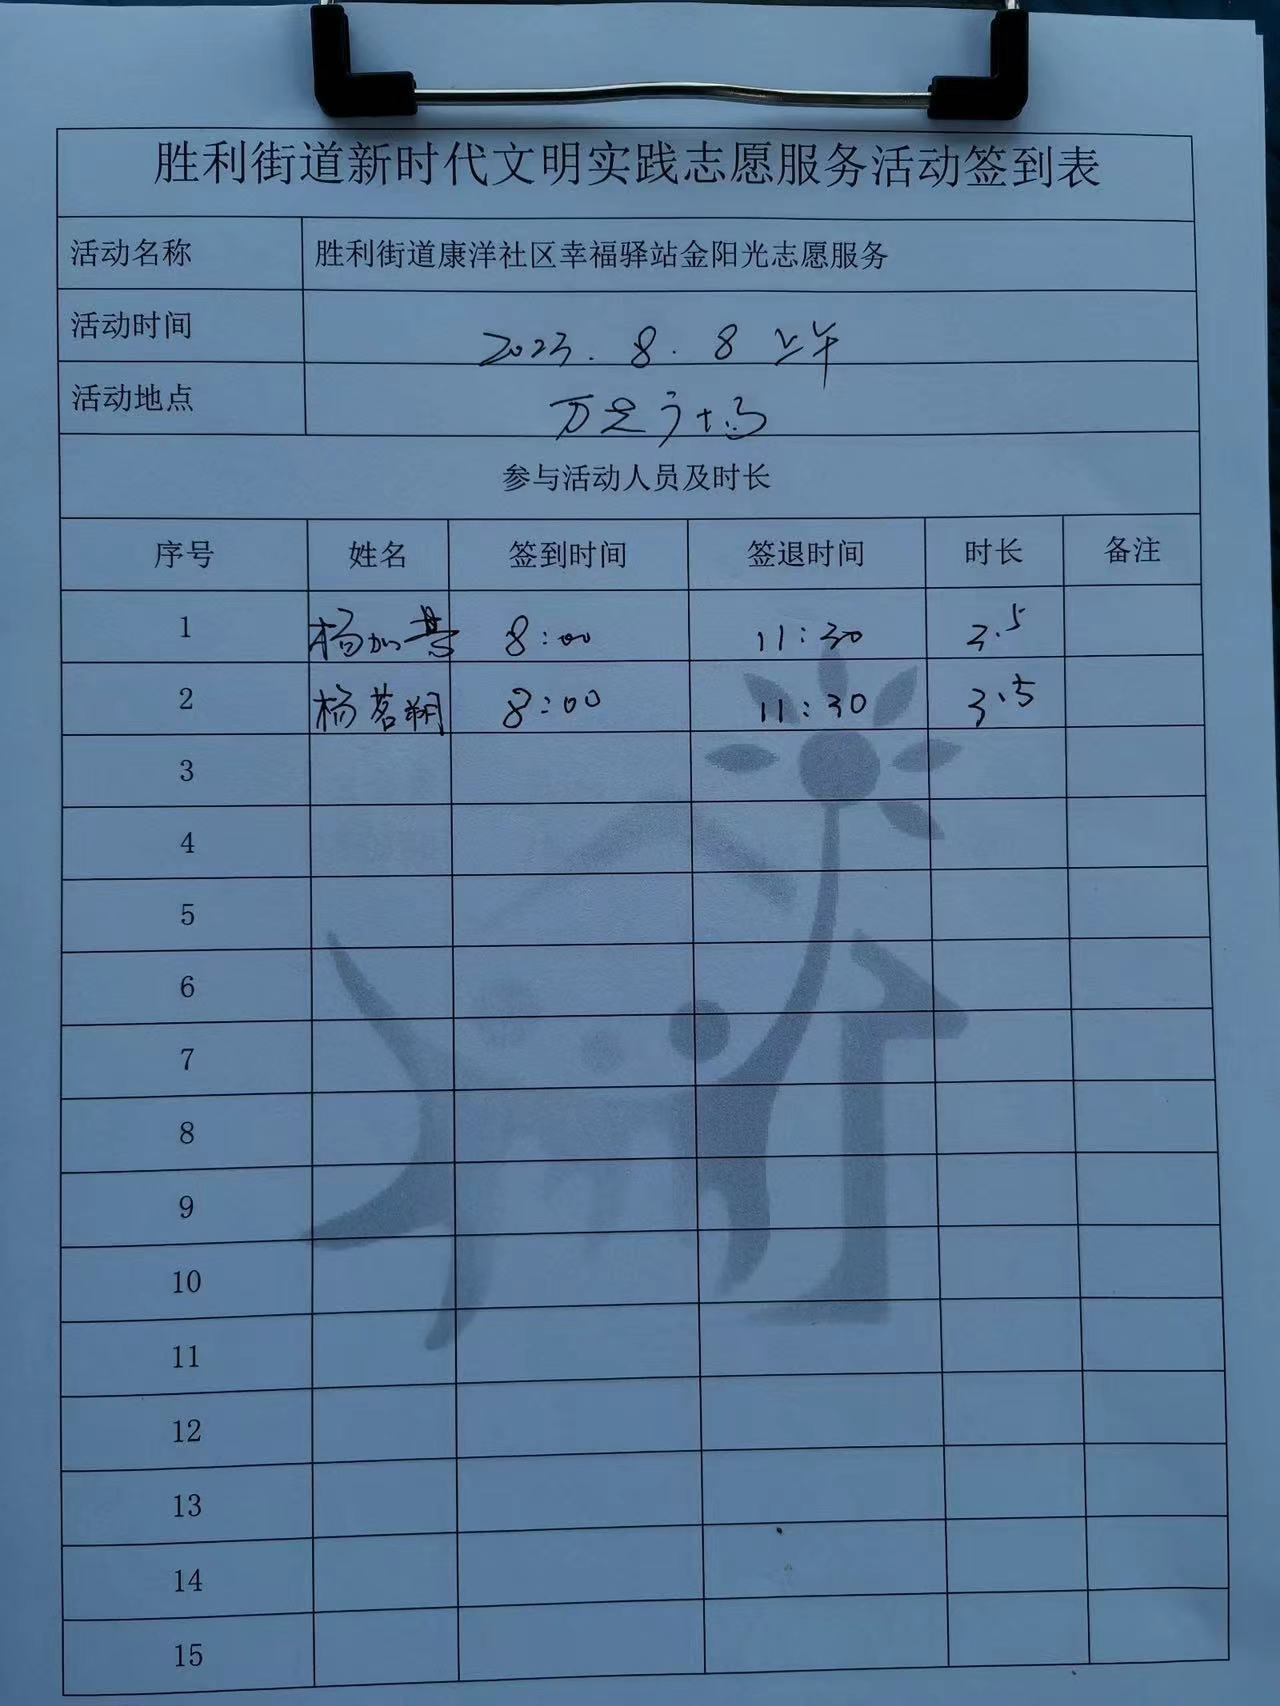 胜利街道新时代文明实践志愿服务活动签到表
活动名称 胜利街道康洋社区幸福驿站金阳光志愿服务
活动时间 2023.8.8 上午
活动地点 万达广场
参与活动人员及时长
序号 姓名 签到时间 签退时间 时长 备注
1 杨加 8:00 11:30 3.5
2 杨茗翔 8:00 11:30 3.5
3
4
5
6
7
8
9
10
11
12
13
14
15